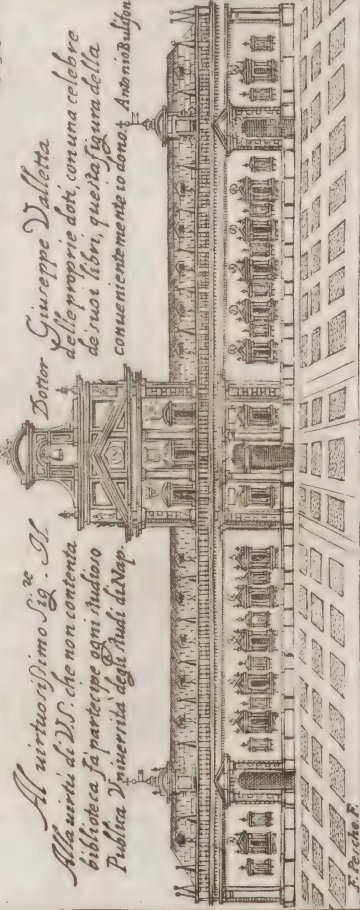 Al uirtuosissimo Sig.re Il Dottor Giuseppe Valletta
Alla uirtù di V.S. che non contenta delle proprie doti, con una celebre
biblioteca fà partecipe ogni studioso de suoi libri, questa figura della
Publica Vniuersità degli studi di Nap. conuenientemente io dono. Antonio Bulifon
F. Pesche. F.